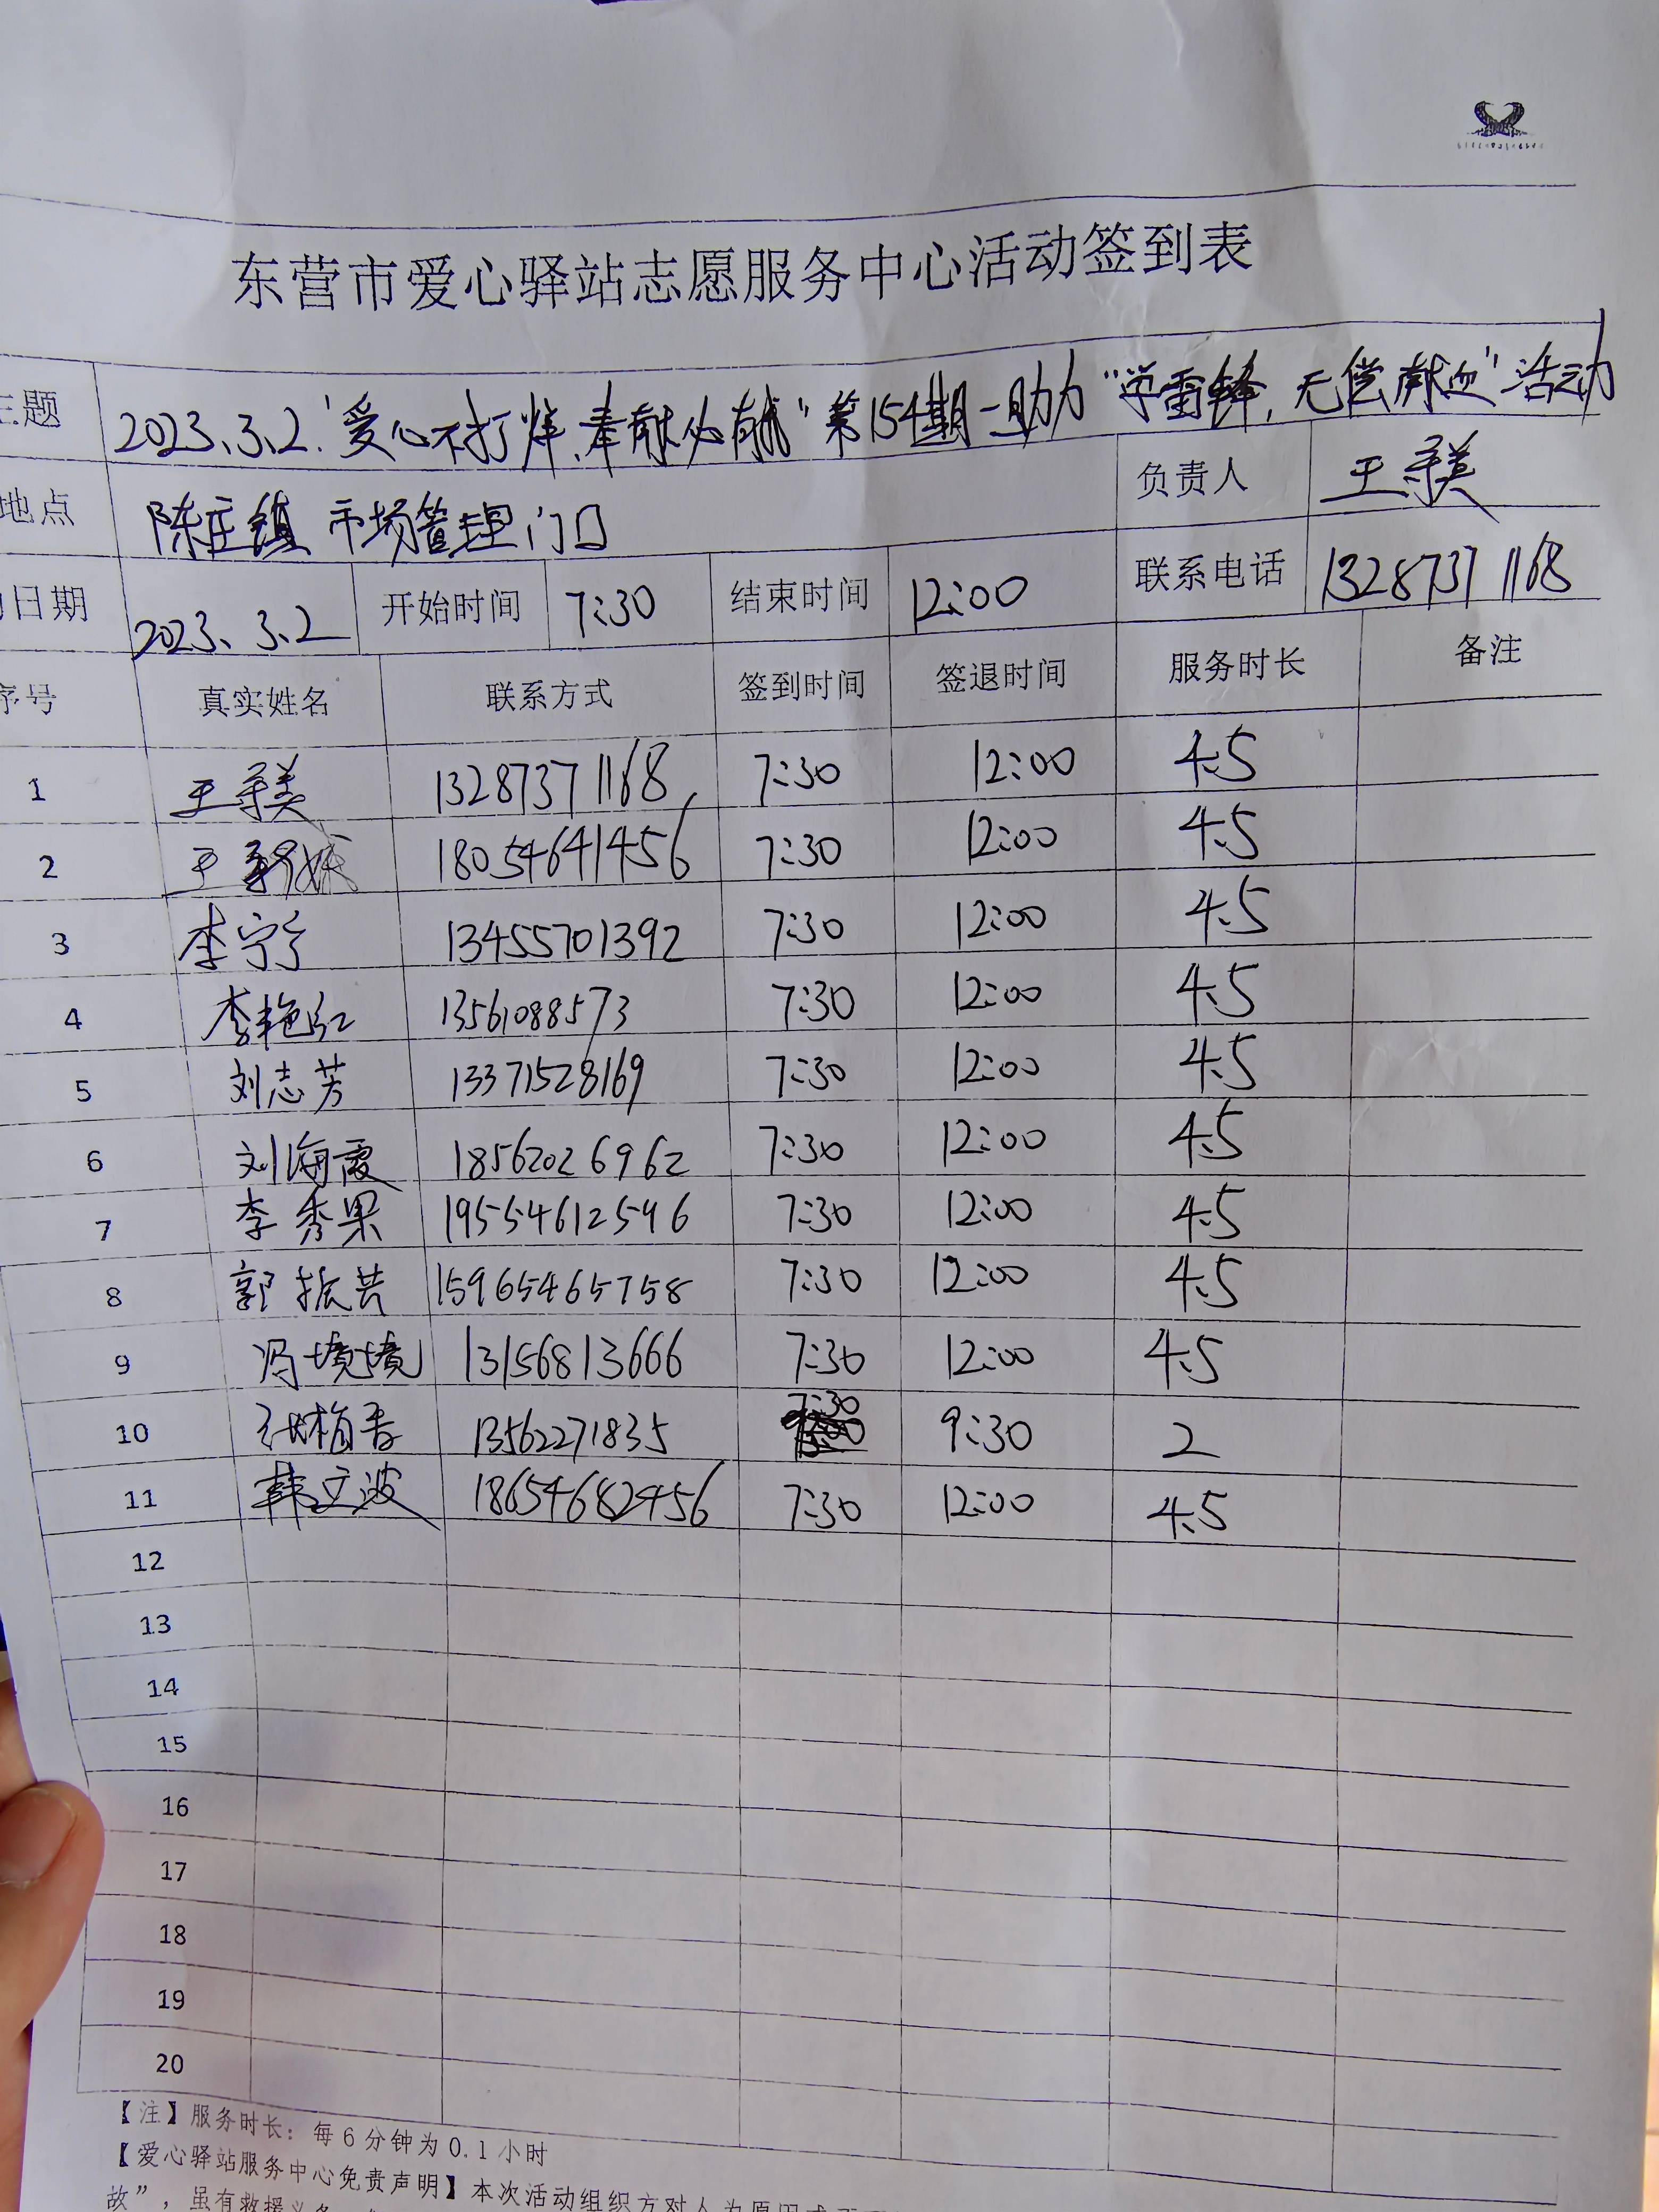 东营市爱心驿站志愿服务中心活动签到表
主题 2023.3.2."爱心不打烊、奉献必有我"第154期—助力"学雷锋,无偿献血"活动
地点 陈庄镇 市场管理门口 负责人 王景美
日期 2023.3.2 开始时间 7:30 结束时间 12:00 联系电话 13287371168
序号 真实姓名 联系方式 签到时间 签退时间 服务时长 备注
1 王景美 13287371168 7:30 12:00 4.5
2 王 18054641456 7:30 12:00 4.5
3 李宁宁 13455701392 7:30 12:00 4.5
4 李艳红 13561088573 7:30 12:00 4.5
5 刘志芳 13371528169 7:30 12:00 4.5
6 刘海霞 18562026962 7:30 12:00 4.5
7 李秀果 19554612596 7:30 12:00 4.5
8 郭振芸 15965465758 7:30 12:00 4.5
9 冯境境 13156813666 7:30 12:00 4.5
10 13562271835 7:30 9:30 2
11 韩立波 18654682456 7:30 12:00 4.5
12
13
14
15
16
17
18
19
20
【注】服务时长:每6分钟为0.1小时
【爱心驿站服务中心免责声明】本次活动组织方对人为原因
故",虽有救援义务